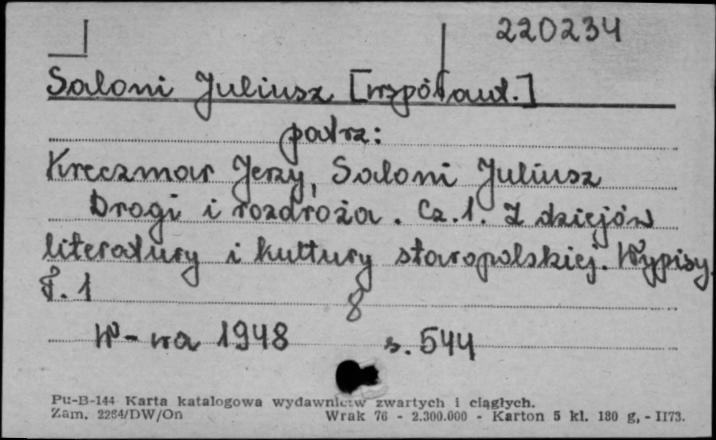 220234
Saloni Juliusz [współaut.]
patrz:
Kreczmar Jerzy, Saloni Juliusz
Drogi i rozdroża. Cz. 1. Z dziejów
literatury i kultury staropolskiej. Wypisy.
T. 1
8
W-wa 1948 s. 544
Pu-B-144 Karta katalogowa wydawnictw zwartych i ciągłych.
Zam. 2284/DW/On Wrak 76 - 2.300.000 - Karton 5 kl. 180 g, - II73.